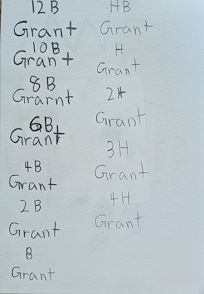 12B
Grant
10B
Grant
8B
Grarnt
6B
Grant
4B
Grant
2B
Grant
B
Grant
HB
Grant
H
Grant
2H
Grant
3H
Grant
4H
Grant